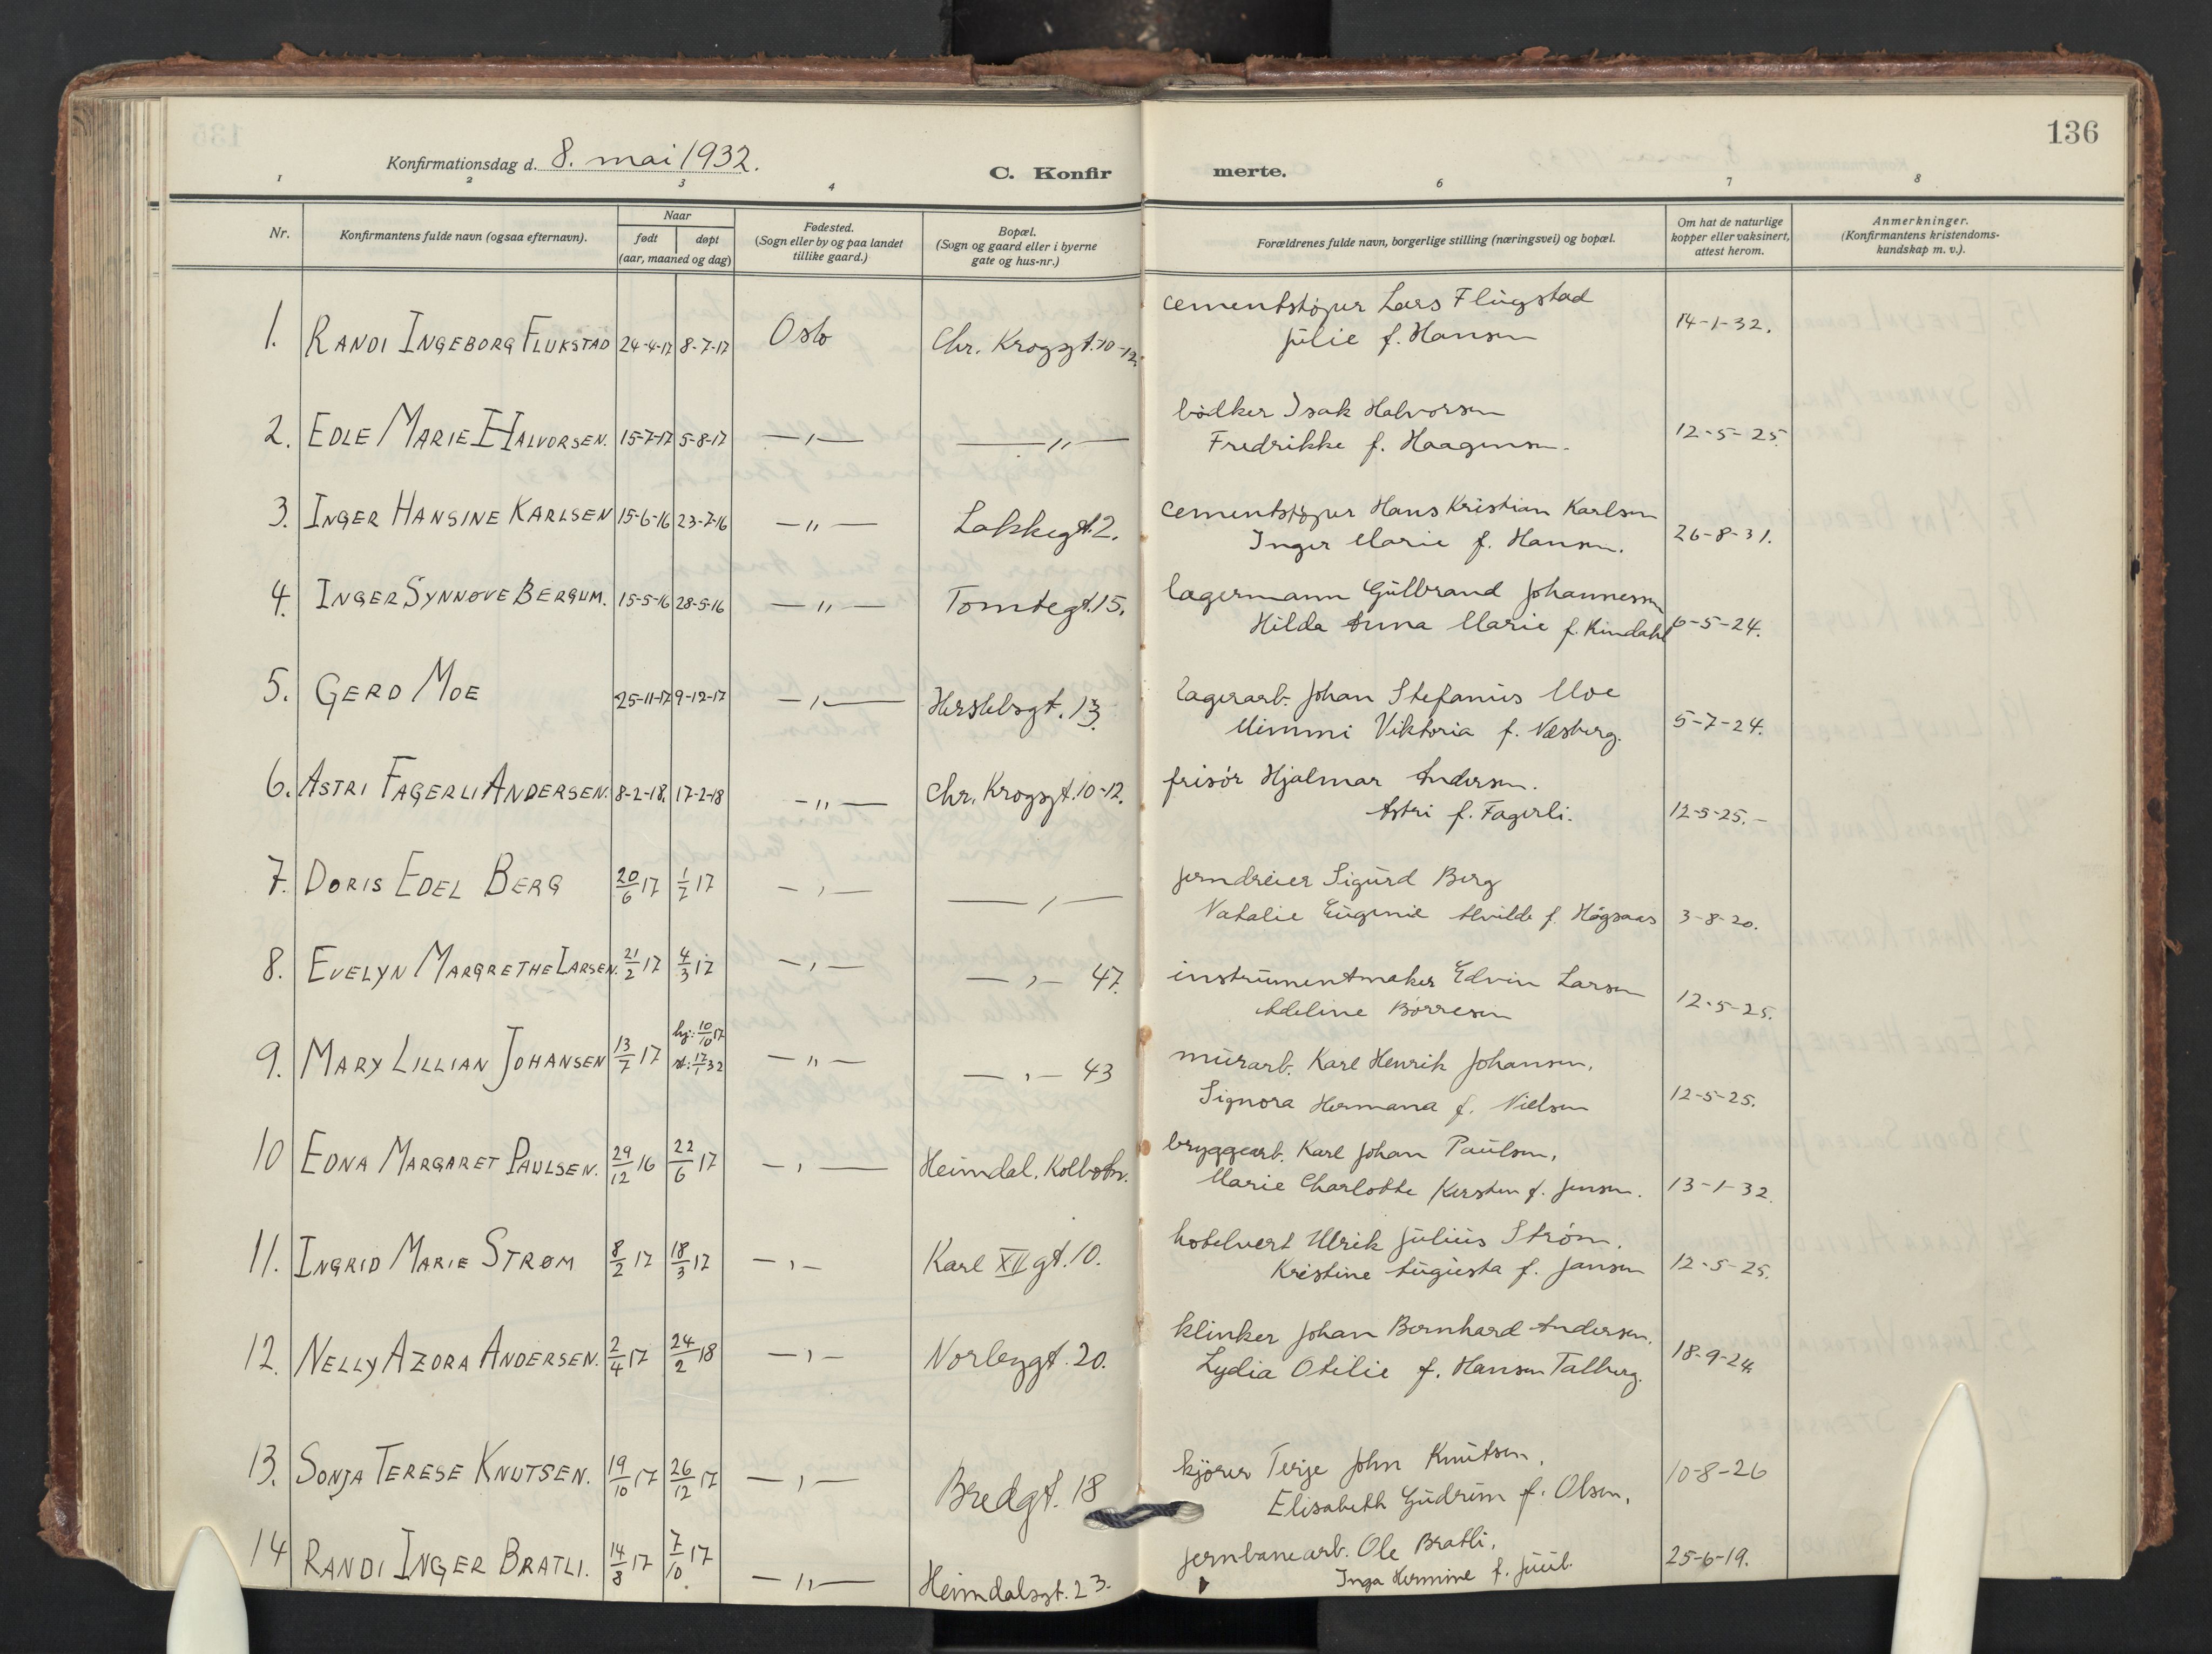 136
Konfirmationsdag d. 8. mai 1932.
C. Konfirmerte.
1 2 3 4 6 7 8
Nr.
Konfirmantens fulde navn (ogsaa efternavn).
Naar
født døpt
(aar, maaned og dag)
Fødested.
(Sogn eller by og paa landet
tillike gaard.)
Bopæl.
(Sogn og gaard eller i byerne
gate og hus-nr.)
Forældrenes fulde navn, borgerlige stilling (næringsvei) og bopæl.
Om hat de naturlige
kopper eller vaksinert,
attest herom.
Anmerkninger.
(Konfirmantens kristendoms-
kundskap m. v.).
1. RANDI INGEBORG FLUKSTAD 24-4-17 8-7-17 Oslo Chr. Krogsgt. 10-12. cementstøper Lars Flugstad
Julie f. Hansen 14-1-32.
2. EDLE MARIE HALVORSEN. 15-7-17 5-8-17 —„— —„— bødker Isak Halvorsen
Fredrikke f. Haagensen. 12-5-25.
3. INGER HANSINE KARLSEN 15-6-16 23-7-16 —„— Lakkegt. 2. cementstøper Hans Kristian Karlsen
Inger Marie f. Hansen. 26-8-31.
4. INGER SYNNØVE BERGUM. 15-5-16 28-5-16 —„— Tomtegt. 15. lagermann Gulbrand Johannessen
Hilda Anna Marie f. Kindahl 6-5-24.
5. GERD MOE 25-11-17 9-12-17 —„— Herslebsgt. 13. lagerarb. Johan Stefanius Moe
Mimmi Viktoria f. Næsberg. 5-7-24.
6. ASTRI FAGERLI ANDERSEN. 8-2-18. 17-2-18 —„— Chr. Krogsgt. 10-12. frisør Hjalmar Andersen.
Astri f. Fagerli. 12-5-25.-
7. DORIS EDEL BERG 20/6 17 1/7 17 —„— —„— jerndreier Sigurd Berg
Natalie Eugenie Alvilde f. Høgsaas 3-8-20.
8. EVELYN MARGRETHE LARSEN. 21/2 17 4/3 17 —„— —„— 47. instrumentmaker Edvin Larsen
Adeline Børresen 12-5-25.
9. MARY LILLIAN JOHANSEN 13/7 17 hj: 10/10 17
st: 17/1 32 —„— —„— 43 murarb. Karl Henrik Johansen.
Signora Hermana f. Nielsen 12-5-25.
10 EDNA MARGARET PAULSEN. 29/12 16 22/6 17 —„— Heimdal, Kolbotn. bryggearb. Karl Johan Paulsen,
Marie Charlotte Kirsten f. Jensen. 13-1-32.
11. INGRID MARIE STRØM 8/2 17 18/3 17 —„— Karl XII gt. 10. hotelvert Ulrik Julius Strøm.
Kristine Augusta f. Jansen 12-5-25.
12. NELLY AZORA ANDERSEN. 2/4 17 24/2 18 —„— Norbygt. 20. klinker Johan Bernhard Andersen.
Lydia Otilie f. Hansen Talberg. 18-9-24.
13. SONJA TERESE KNUTSEN. 19/10 17 26/12 17 —„— Bredgt. 18 kjører Terje John Knutsen,
Elisabeth Gudrun f. Olsen, 10-8-26
14 RANDI INGER BRATLI. 14/8 17 7/10 17 —„— Heimdalsgt. 23. jernbanearb. Ole Bratli,
Inga Hermine f. Juul. 25-6-19.